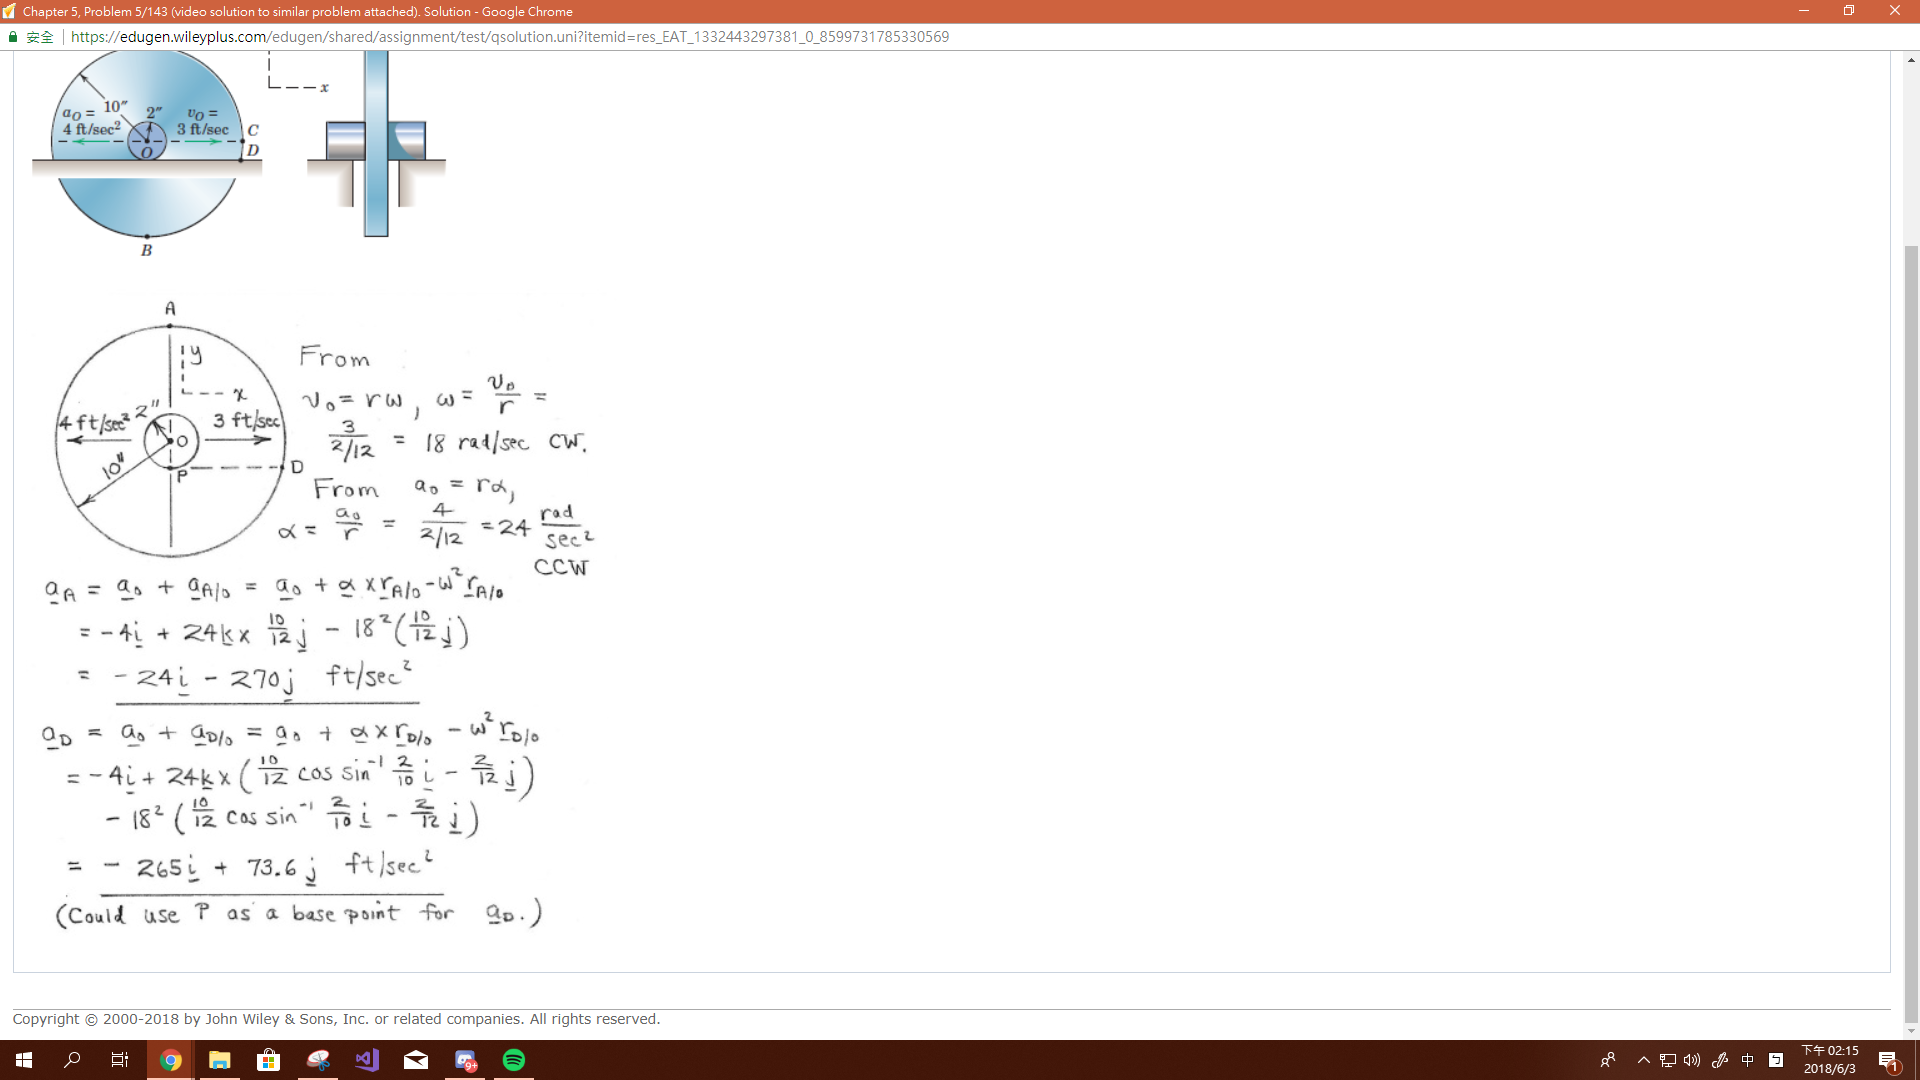 Chapter 5, Problem 5/143 (video solution to similar problem attached). Solution - Google Chrome
安全 https://edugen.wileyplus.com/edugen/shared/assignment/test/qsolution.uni?itemid=res_EAT_1332443297381_0_8599731785330569
x
10″ 2″
a_O = 4 ft/sec²
v_O = 3 ft/sec
C
D
O
B
A
y
x
4 ft/sec² 2" 3 ft/sec
O
10"
P
D
From
v₀ = rω, ω = v₀/r =
3/(2/12) = 18 rad/sec CW.
From a₀ = rα,
α = a₀/r = 4/(2/12) = 24 rad/sec²
CCW
a_A = a₀ + a_A/O = a₀ + α × r_A/O - ω² r_A/O
= -4i + 24k × 10/12 j - 18² (10/12 j)
= -24i - 270j ft/sec²
a_D = a₀ + a_D/O = a₀ + α × r_D/O - ω² r_D/O
= -4i + 24k × (10/12 cos sin⁻¹ 2/10 i - 2/12 j)
- 18² (10/12 cos sin⁻¹ 2/10 i - 2/12 j)
= - 265i + 73.6 j ft/sec²
(Could use P as a base point for a_D.)
Copyright © 2000-2018 by John Wiley & Sons, Inc. or related companies. All rights reserved.
9+
中
下午 02:15
2018/6/3
1